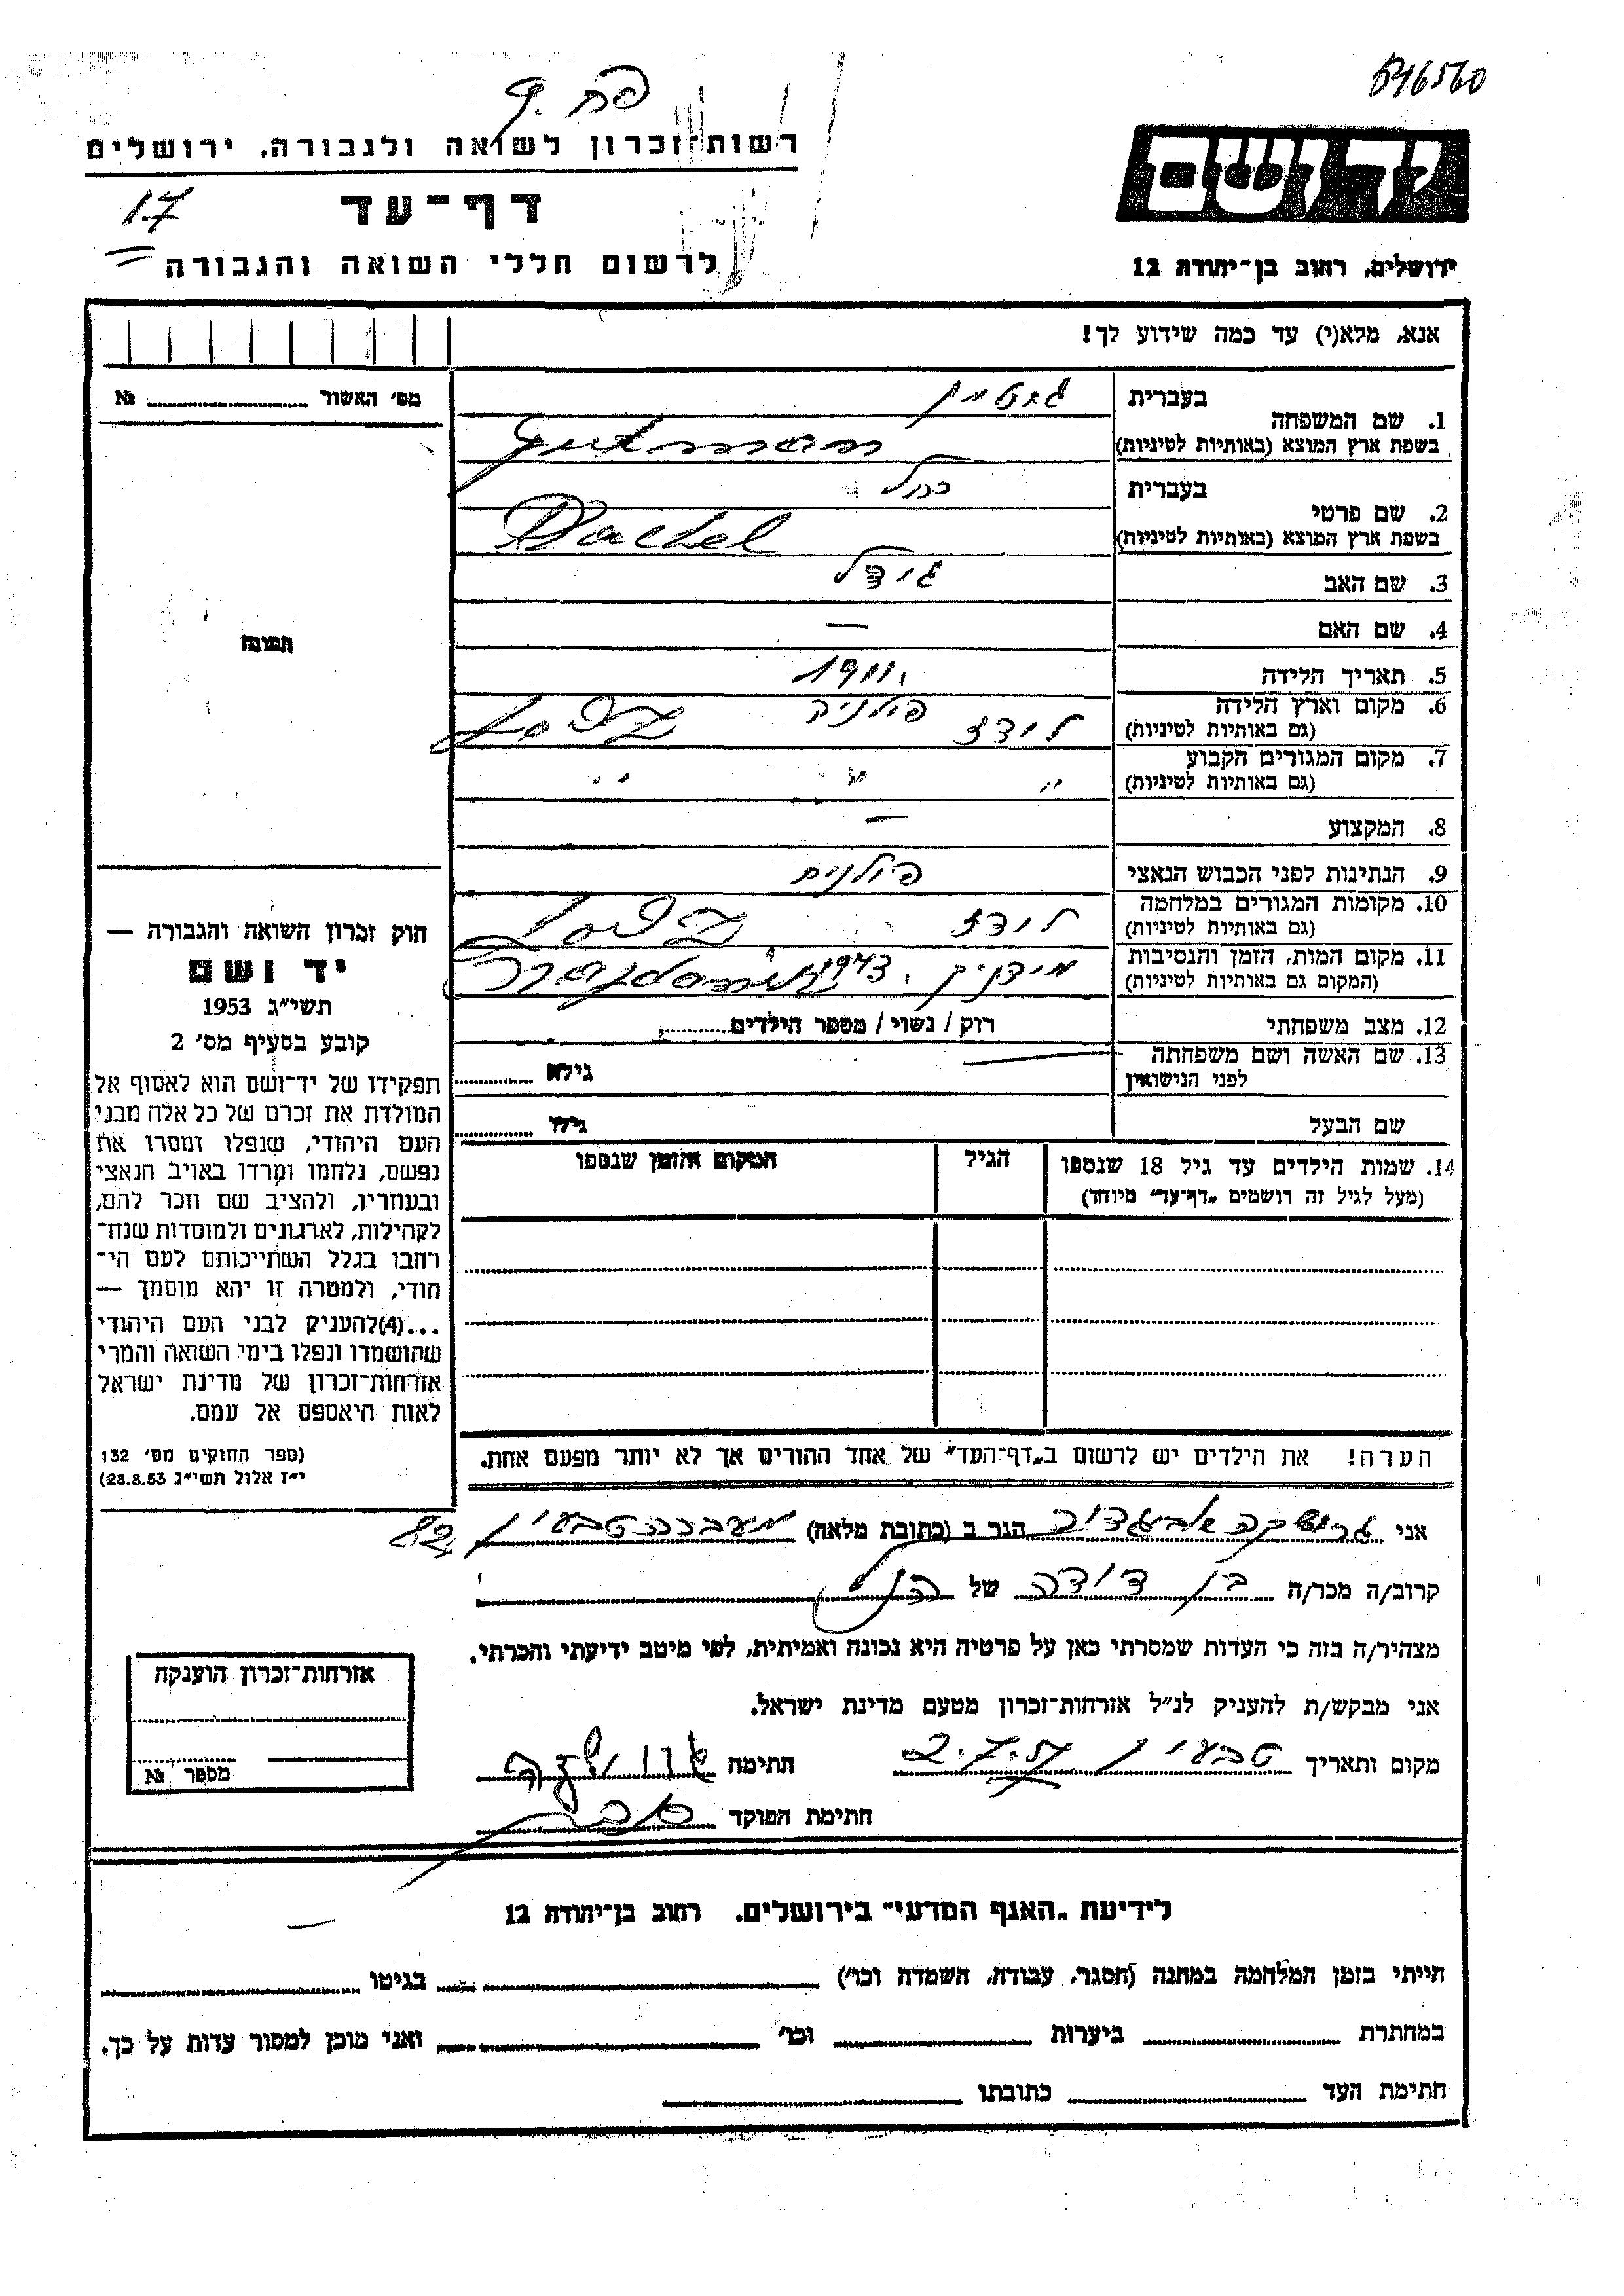 פח. 9
רשות־זכרון לשואה ולגבורה, ירושלים
17
דף־עד
לרשום חללי השואה והגבורה
יד ושם
ירושלים, רחוב בן־יהודה 12
אנא, מלא(י) עד כמה שידוע לך!
מס׳ האשור № 
1. שם המשפחה
בעברית גוטמן
בשפת ארץ המוצא (באותיות לטיניות) Gutman
2. שם פרטי
בעברית רחל
בשפת ארץ המוצא (באותיות לטיניות) Rachel
3. שם האב גידל
4. שם האם —
5. תאריך הלידה 1911.
6. מקום וארץ הלידה
(גם באותיות לטיניות) לודז פולניה Lodz
7. מקום המגורים הקבוע
(גם באותיות לטיניות) " " "
8. המקצוע —
9. הנתינות לפני הכבוש הנאצי פולנית
10. מקומות המגורים במלחמה
(גם באותיות לטיניות) לודז Lodz
11. מקום המות, הזמן והנסיבות
(המקום גם באותיות לטיניות) מידניק . 1943 Majdanek
12. מצב משפחתי רוק / נשוי / מספר הילדים
13. שם האשה ושם משפחתה
לפני הנישואין — גילה
שם הבעל גילו
14. שמות הילדים עד גיל 18 שנספו
(מעל לגיל זה רושמים „דף־עד״ מיוחד)
הגיל
המקום והזמן שנספו
הערה! את הילדים יש לרשום ב„דף־העד״ של אחד ההורים אך לא יותר מפעם אחת.
תמונה
חוק זכרון השואה והגבורה —
יד ושם
תשי״ג 1953
קובע בסעיף מס׳ 2
תפקידו של יד־ושם הוא לאסוף אל
המולדת את זכרם של כל אלה מבני
העם היהודי, שנפלו ומסרו את
נפשם, נלחמו ומרדו באויב הנאצי
ובעוזריו, ולהציב שם וזכר להם,
לקהילות, לארגונים ולמוסדות שנח־
רבו בגלל השתייכותם לעם הי־
הודי, ולמטרה זו יהא מוסמך —
...(4)להעניק לבני העם היהודי
שהושמדו ונפלו בימי השואה והמרי
אזרחות־זכרון של מדינת ישראל
לאות היאספם אל עמם.
(ספר החוקים מס׳ 132
י״ז אלול תשי״ג 28.8.53)
אני הגר ב (כתובת מלאה) מעברת טבעון 82
קרוב/ה מכר/ה בן דודה של הנ״ל
מצהיר/ה בזה כי העדות שמסרתי כאן על פרטיה היא נכונה ואמיתית, לפי מיטב ידיעתי והכרתי.
אני מבקש/ת להעניק לנ״ל אזרחות־זכרון מטעם מדינת ישראל.
מקום ותאריך טבעון 2.7.57 חתימה
חתימת הפוקד
אזרחות־זכרון הוענקה
מספר №
לידיעת „האגף המדעי״ בירושלים, רחוב בן־יהודה 12
הייתי בזמן המלחמה במחנה (הסגר, עבודה, השמדה וכו׳) בגיטו
במחתרת ביערות וכו׳ ואני מוכן למסור עדות על כך.
חתימת העד כתובתו